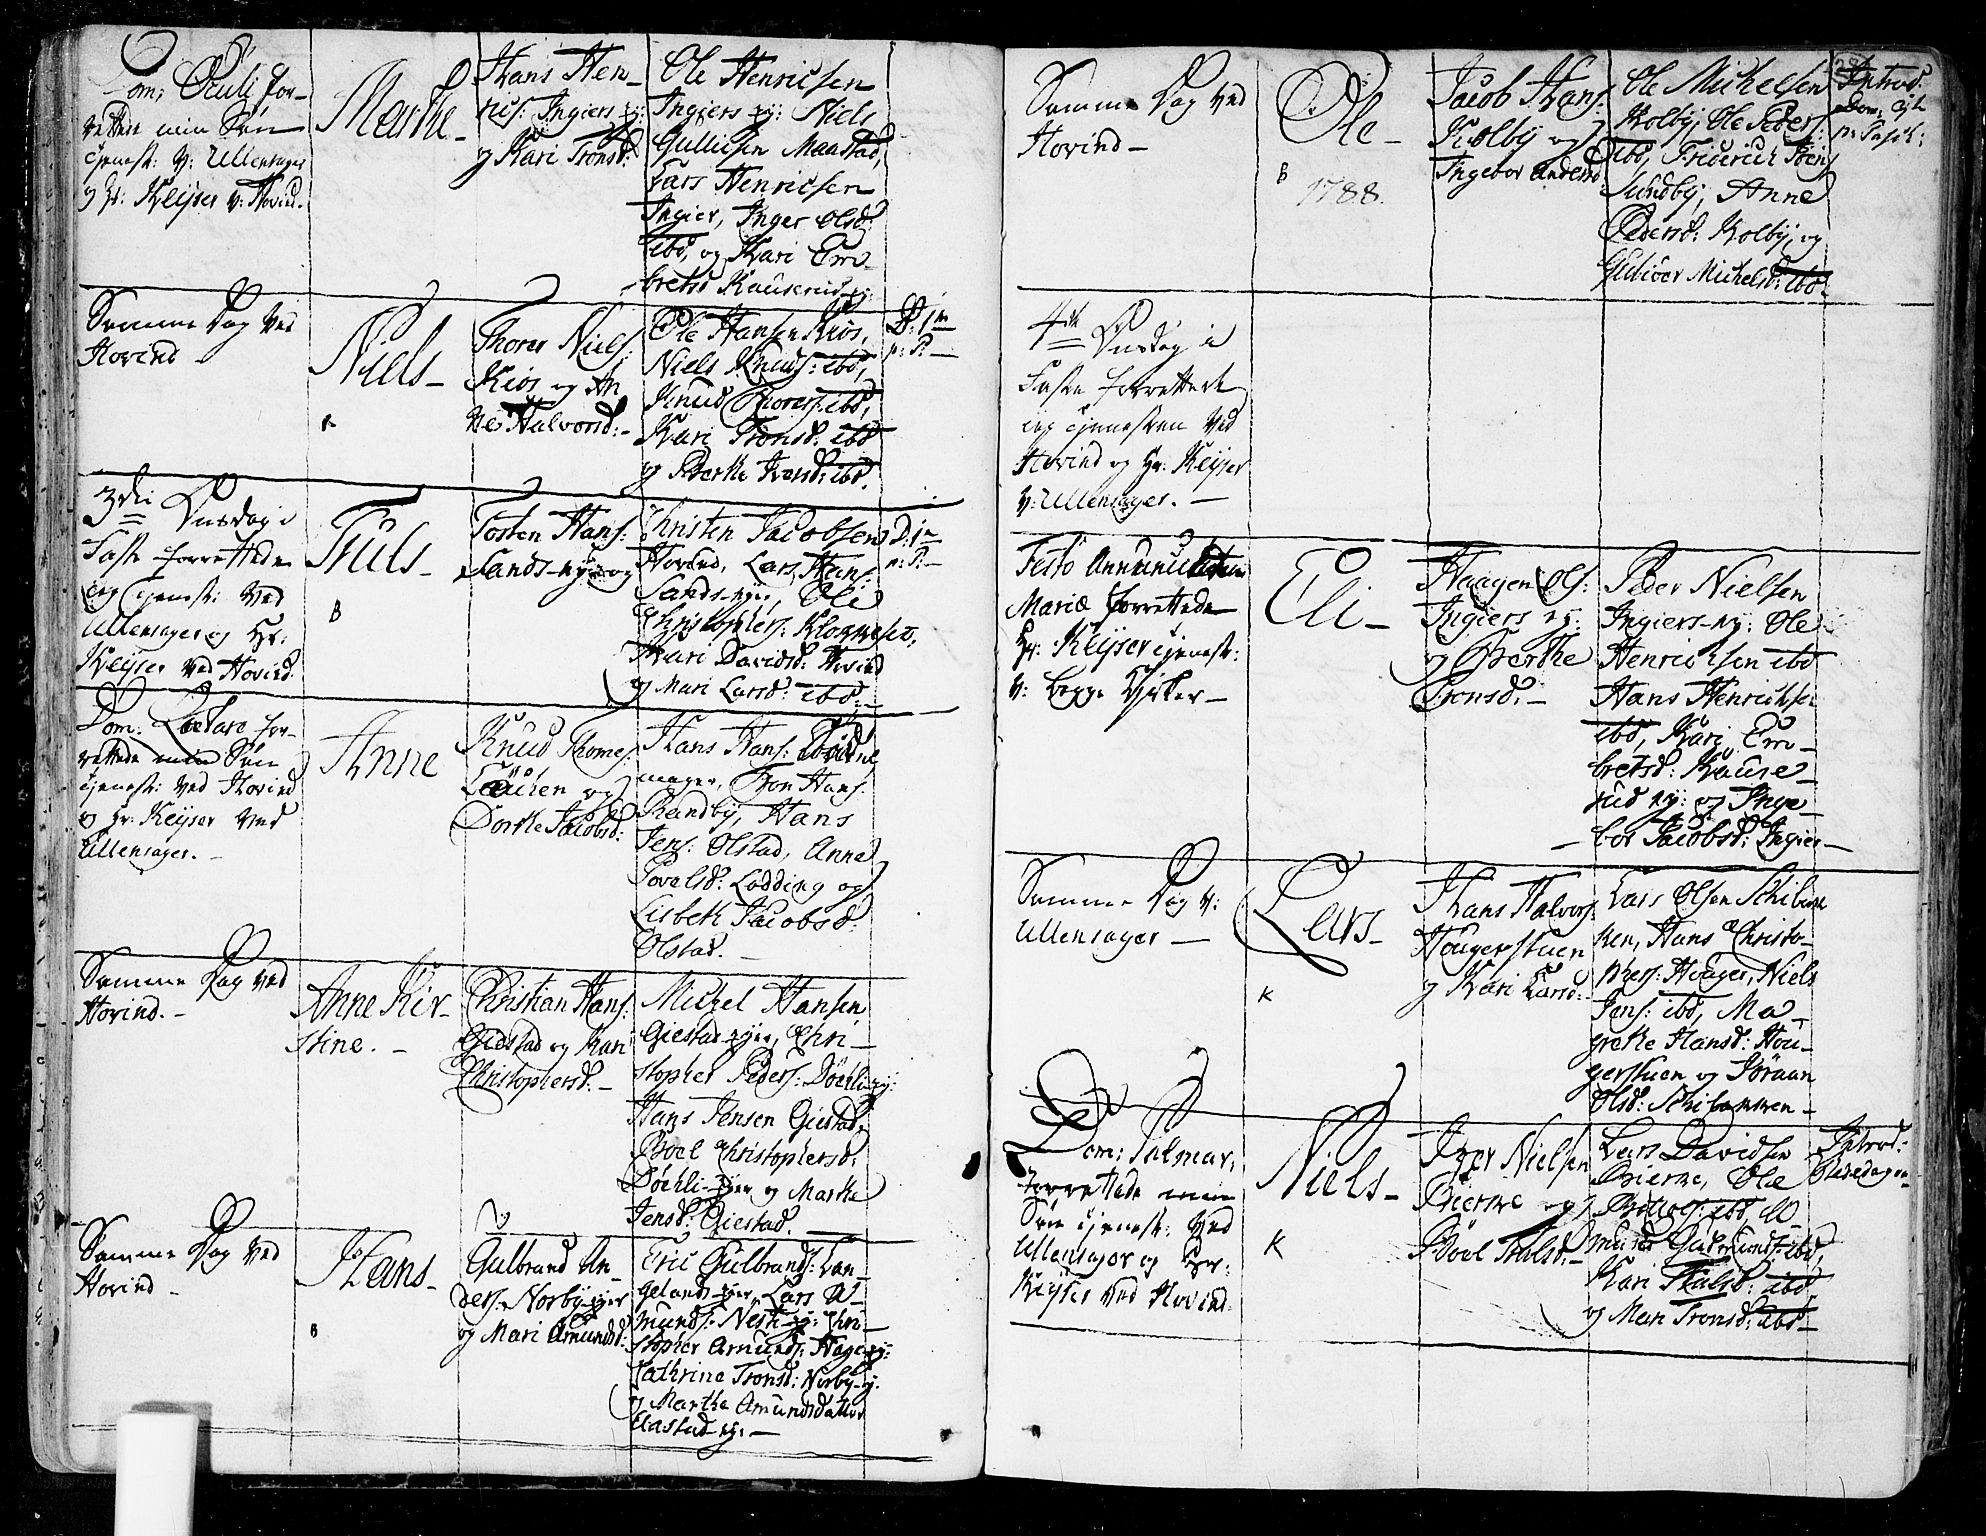 Dom: Oculi for-
rettede min Søn
tjenest: v: Ullensager
og Hr: Keyser v: Hovind.
Marthe -
Hans Hen-
rics: Ingiers ey:
og Kari Tronsd:
Ole Henricsen
Ingiers ey: Niels
Gullicsen Maastad,
Lars Henricsen
Ingier, Inger Olsd:
ibd, og Kari Em-
bretsd Kauserud ey:
Samme Dag ved
Hovind -
Niels -
Thorer Niels:
Kios og An-
ne Halvorsd: -
Ole Hansen Kios,
Niels Knuds: ibd,
Knud Thorers: ibd,
Kari Tronsd: ibd
og Berthe Iversd: ibd.
D: 1 m
p: P: -
3die Onsdag i
Faste forrettede
ieg tjenest: ved
Ullensager og Hr:
Keyser ved Hovind.
Truls -
B
Tosten Hans:
Sands-eyer og
Christen Jacobsen
Hovind, Lars Hans:
Sands-eyer, Ole
Christophers: Klokkeset,
Kari Davidsd: Hovind
og Mari Larsd: ibd: -
D: 1 m
p: P: -
Dom: Lætare for-
rettede min Søn
tjenest: ved Hovind
og Hr: Keyser ved
Ullensager. -
Anne
Knud Thomes:
Lauken og
Dorthe Jacobsd:
Hans Hans:
mager, Tron Hans:
Randby, Hans
Jens: Olstad, Anne
Povelsd: Lodding og
Lisbeth Jacobsd:
Olstad. -
Samme Dag ved
Hovind. -
Anne Kir-
stine. -
Christian Hans:
Gidstad og Kari
Christophersd: -
Michel Hansen
Giestad-eyer, Chri-
stopher Peders: Døehli-ey:
Hans Jensen Giestad,
Boel Christophersd:
Døehli-eyer og Marthe
Jensd: Giestad. -
Samme Dag ved
Hovind -
Hans -
B
Gulbrand An-
ders: Norby-eyer
og Mari Amundsd:
Eric Gulbrands: Lan-
gelands-eyer, Lars A-
munds: Nesti-ey: Chri-
stopher Amunds: Hage-ey:
Cathrine Tronsd: Norby-ey:
og Marthe Amundsdatter
Aastad-ey: -
Samme Dag ved
Hovind -
Ole -
B
1788.
Jacob Hans:
Kolby og
Ingebor Andersd:
Ole Michelsen
Kolby, Ole Peders:
ibd, Friderich Jens:
Sundby, Anne
Pedersd: Kolby, og
Gulioer Michelsd: ibd -
Introd:
Dom: 4ta
p: Pasch:
4de Onsdag i
Faste forrettede
ieg tjenesten ved
Hovind og Hr: Keyser
v: Ullensager. -
Festo Annunciationis
Mariæ forrettede
Hr: Keyser tjenest:
v: begge Kirker -
Eli -
Haagen Ols:
Ingiers ey:
og Berthe
Tronsd. -
Peder Nielsen
Ingiers-ey: Ole
Henrichsen ibd
Hans Henrichsen
ibd, Kari Em-
bretsd: Kause-
rud ey: og Inge-
bor Jacobsd: Ingier -
Samme Dag v:
Ullensager -
Lars -
K
Hans Halvors:
Hougerstuen
og Kari Larsd: -
Lars Olsen Schibak-
ken, Hans Christo-
phers: Houger, Niels
Jens: ibd, Ma-
grethe Hansd: Hou-
gerstuen og Jøraan
Olsd: Schibakken -
Dom: Palmar:
forrettede min
Søn tjenest: ved
Ullensager og Hr:
Keyser ved Hovind.
Niels -
K
Iver Nielsen
Bierke og
Boel Trulsd: -
Lars Davidsen
Bierke, Ole
Botolvs: ibd, A-
mund Gudmunds: ibd,
Kari Trulsd: ibd
og Mari Tronsd: ibd -
Introd: